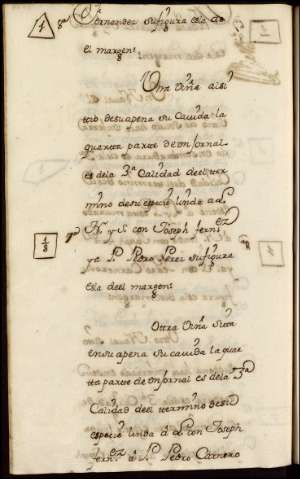 4 8ª Fernandez su figura es la de
el margen
Otra Viña al sitio
tio de su apena su Cavida la
quarta parte de on fornal
es de la 3ª Calidad de el ter
mino de su especie linda a L.
N. y S. con Joseph fernz
1/8 y a P. Pedro Perez su figura
es la de el margen
Ottra Viña sitta
en su apena su cavida la quar
tta parte de on fornal es de la 3ª
Calidad de el termino de su
especie linda a L. con Joseph
fernz a P. Pedro Carnero